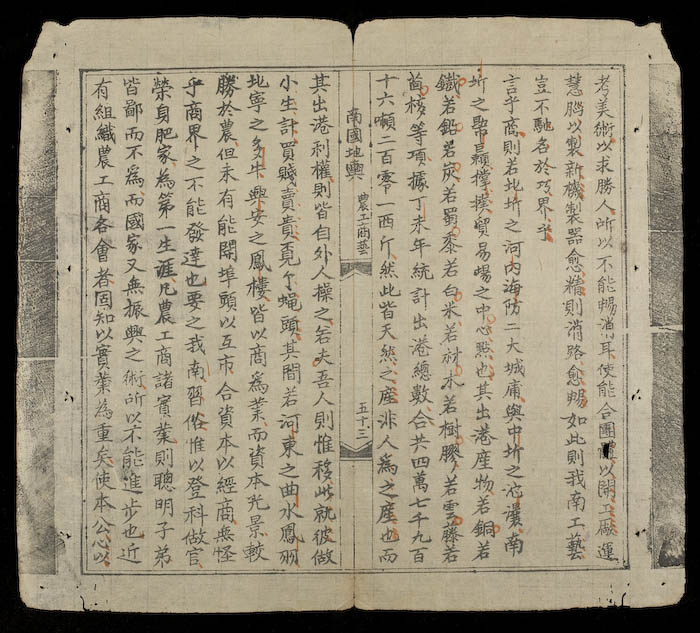 考美術以求勝人所以不能暢消耳使能合團體以開工廠運
慧腦以製新機製器愈精則消路愈暢如此則我南工藝
豈不馳名於巧界乎
言乎商則若北圻之河內海防二大城庸與中圻之沱㶞南
圻之𢄂䫙撑揍貿易場之中心點也其出港產物若銅若
鐵若鉛若炭若蜀黍若白米若材木若樹膠若雲藤若
茴核等項據丁未年統計出港總數合共四萬七千九百
十六噸二百零一西斤然此皆天然之產非人為之產也而
南國地輿
農工商藝
五十三
其出港利權則皆自外人操之若夫吾人則惟移此就彼做
小生計買賤賣貴覓個蠅頭其間若河東之曲水鳳翔
北寧之多牛興安之鳳樓皆以商為業而資本光景較
勝於農但未有能開埠頭以互市合資本以經商無怪
乎商界之不能發達也要之我南習俗惟以登科做官
榮身肥家為第一生涯凡農工商諸實業則聰明子弟
皆鄙而不為而國家又無振興之術所以不能進步也近
有組織農工商各會者固知以實業為重矣使本公心以